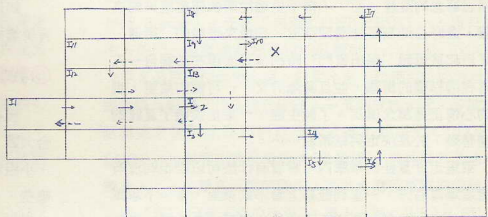 I8 I7
I11 I9 I10 X
I12 I13
I1 I2
I3 I4
I5 I6